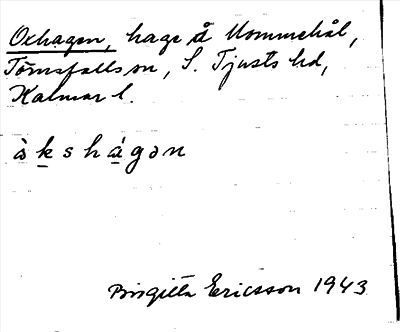 Oxhagen, hage å Mommehål,
Törnsfalls sn, S. Tjusts hd,
Kalmar l.
àkshágən
Birgitta Ericsson 1943